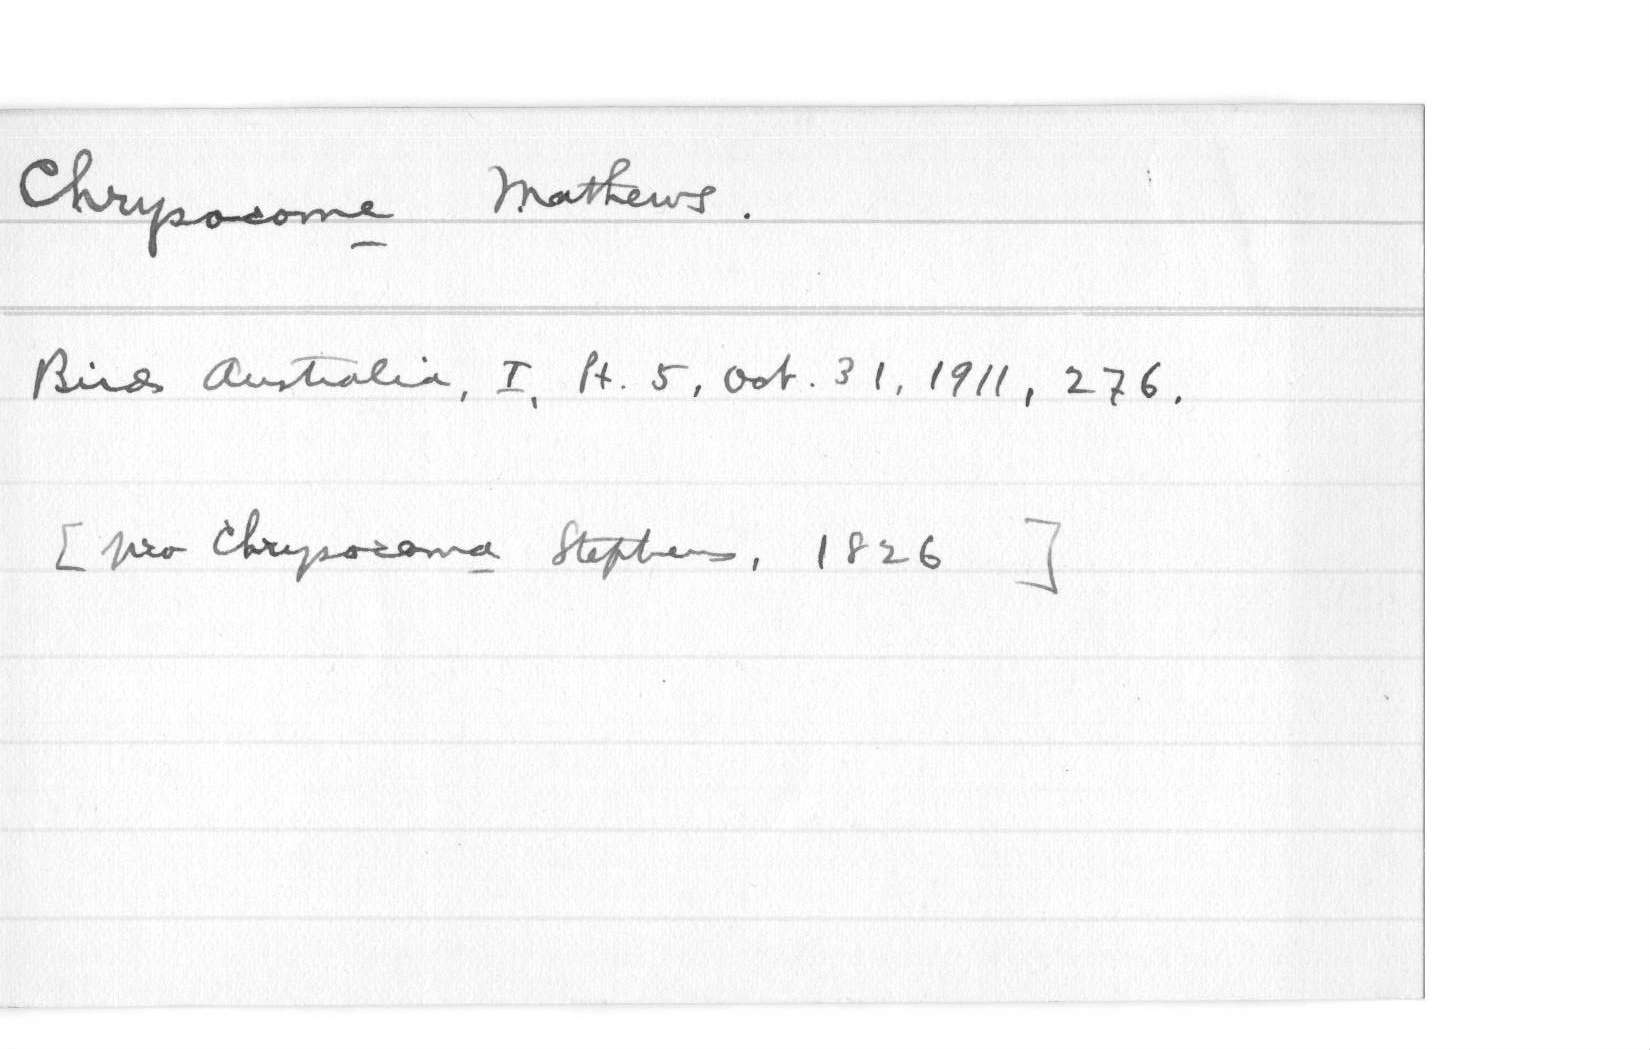 Chrysocome Mathews.
Birds Australia, I, Pt. 5, Oct. 31, 1911, 276.
[ pro Chrysocoma Stephens, 1826 ]